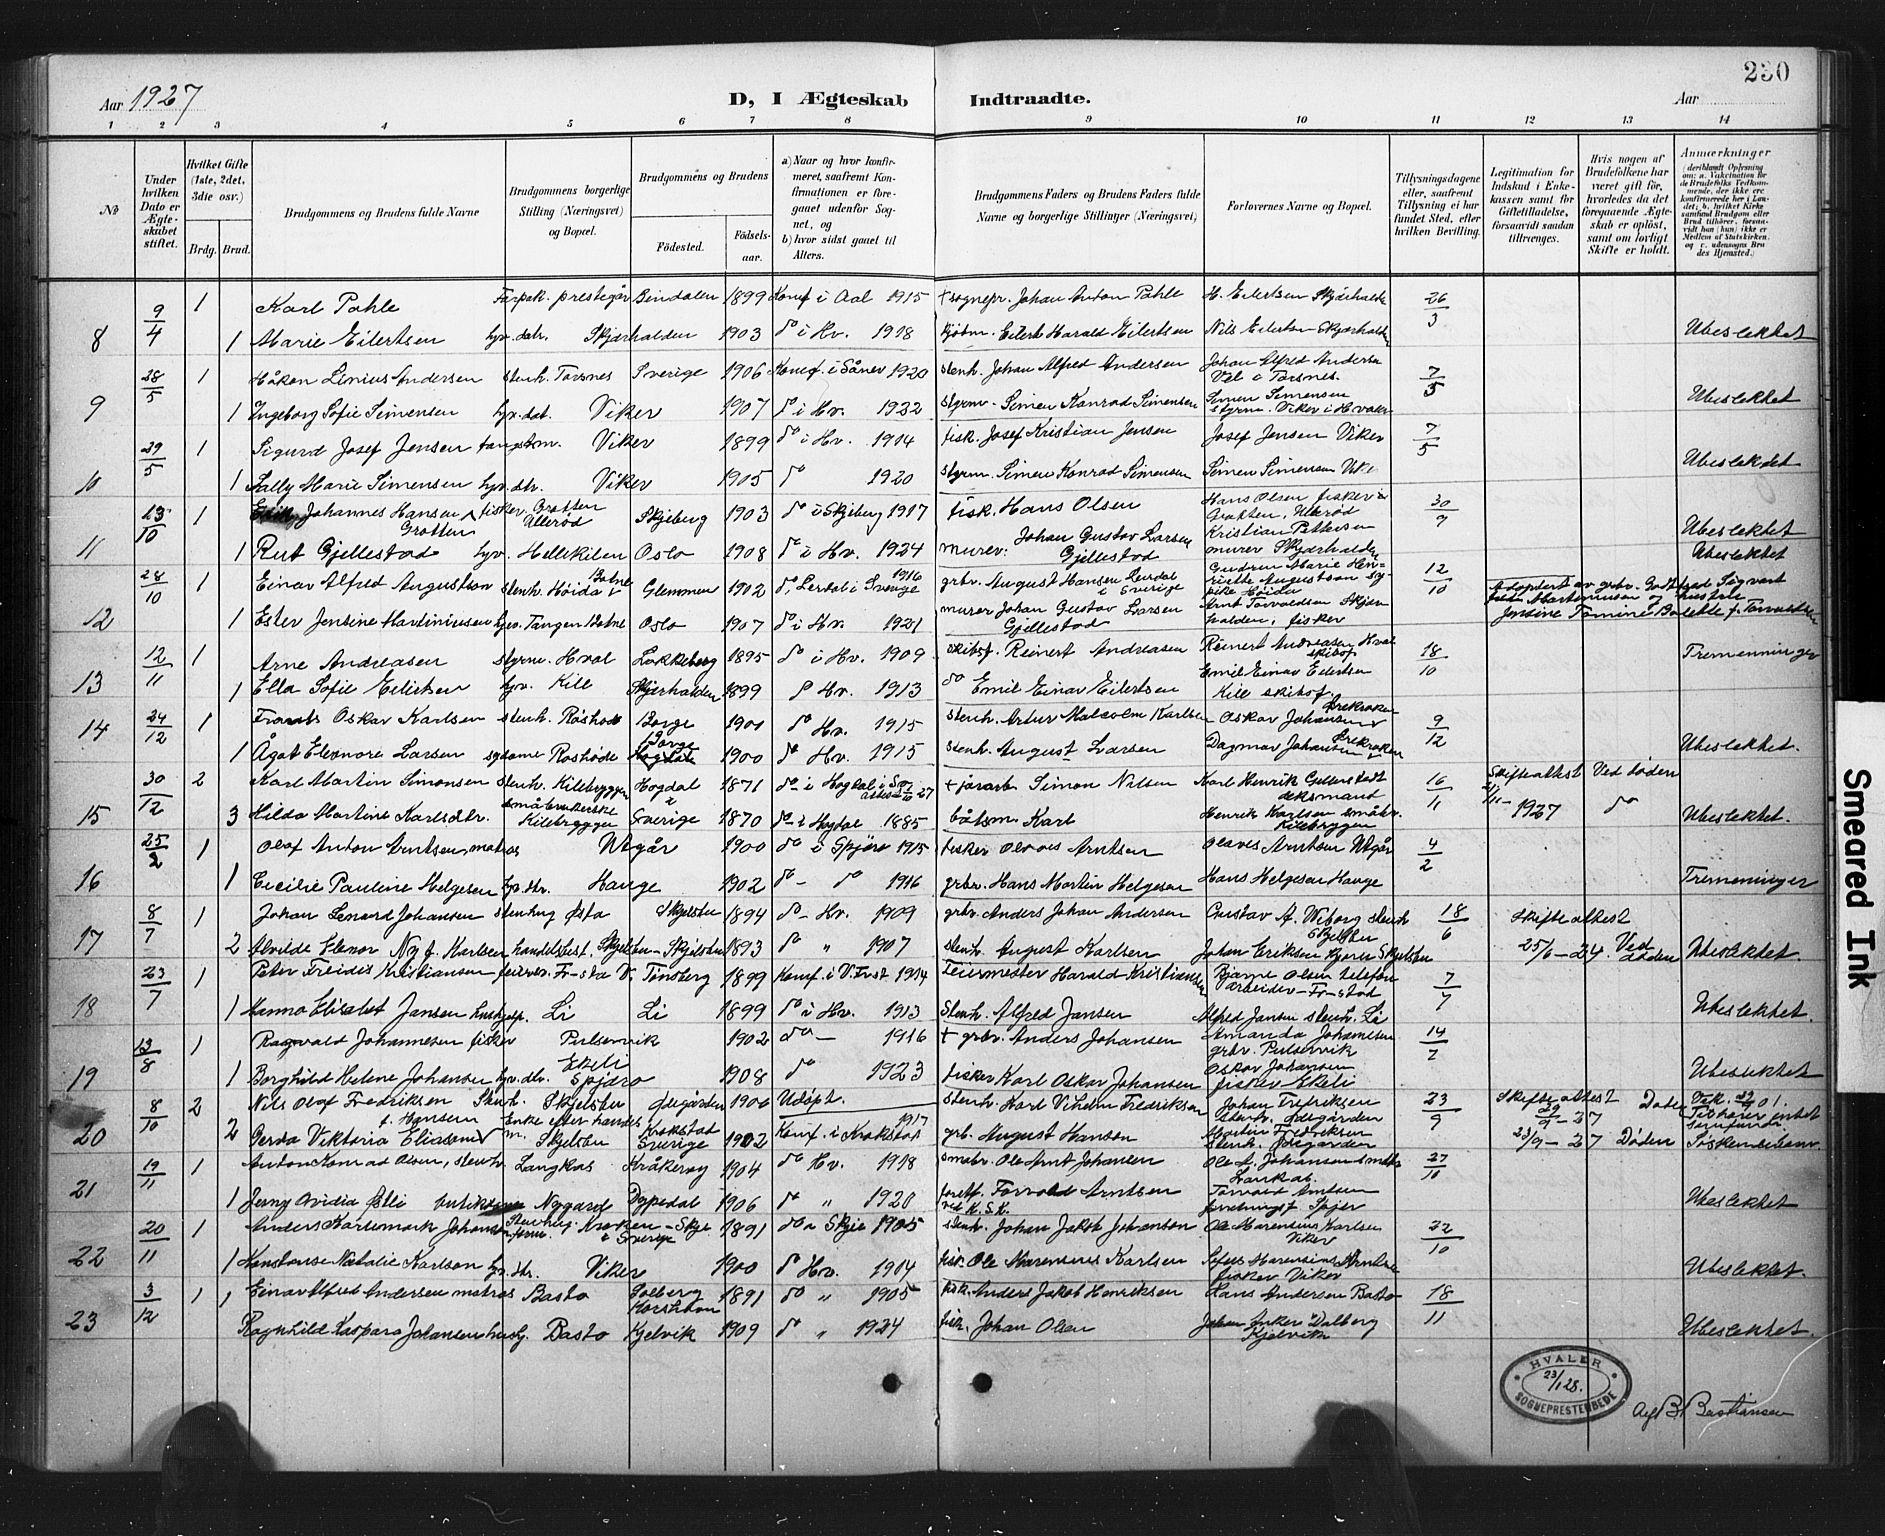 230
Aar 1927
D, I Ægteskab Indtraadte.
Aar
1 2 3 4 5 6 7 8 9 10 11 12 13 14
No
Under hvilken Dato er Ægteskabet stiftet.
Hvilket Gifte (1ste, 2det, 3die osv.)
Brdg. Brud.
Brudgommens og Brudens fulde Navne
Brudgommens borgerlige Stilling (Næringsvei) og Bopæl.
Brudgommens og Brudens
Fødested. Fødselsaar.
a) Naar og hvor konfirmeret, saafremt Konfirmationen er foregaaet udenfor Sognet, og
b) hvor sidst gaaet til Alters.
Brudgommens Faders og Brudens Faders fulde Navne og borgerlige Stillinger (Næringsvei)
Forlovernes Navne og Bopæl.
Tillysningsdagene eller, saafremt Tillysning ei har fundet Sted, efter hvilken Bevilling.
Legitimation for Indskud i Enkekassen samt for Giftetilladelse, forsaavidt saadan tiltrænges.
Hvis nogen af Brudefolkene har været gift før, hvorledes da det foregaaende Ægteskab er opløst, samt om lovligt Skifte er holdt.
Anmerkninger
9/4 1 Karl Pahle Forpakt. prestegår Bindalen 1899 Konf i Aal 1915 + sognepr. Johan Anton Pahle H. Eilertsen Skjærhalde 26/3
8 1 Marie Eilertsen hp. dtr. Skjærhalden 1903 do i Hv. 1918 kjøbm. Eilert Harald Eilertsen Nils Eilertsen Skjærhalden Ubeslektet
28/5 1 Håkon Linius Andersen stenh. Torsnes Sverige 1906 Konf. i Såner 1920 stenh. Johan Alfred Andersen Johan Alfred Andersen Vel i Torsnes. 7/5
9 1 Ingeborg Sofie Simensen hp. dat. Viker 1907 do i Hv. 1922 styrm. Simen Konrad Simensen Simen Simensen styrm. Viker i Hvaler Ubeslektet
29/5 1 Sigurd Josef Jensen Viker 1899 do i Hv. 1914 fisk. Josef Kristian Jensen Josef Jensen Viker 7/5
10 1 Sally Marie Simensen hp. dtr. Viker 1905 do 1920 styrm. Simen Konrad Simensen Simen Simensen Vik Ubeslektet
23/10 1 Johannes Hansen Grotten fisker Grotten Ullerød Skjeberg 1903 do i Skjeberg 1917 fisk. Hans Olsen Hans Olsen fisker Grotten, Ullerød 30/9 Ubeslektet
11 1 Rut Gjellestad hp. Hellekilen Oslo 1908 do i Hv. 1924 murer. Johan Gustav Larsen Gjellestad Kristian Pettersen murer Skjærhalden Ubeslektet
28/10 1 Einar Alfred Augustson stenh. Høida Botne Glemmen 1902 do, Lerdal i Sverige 1916 grbr. August Hansen Lerdal i Sverige Gudrun Marie Henriette Augustson pike Høida 12/10 Adoptert av grbr. Godtfred Sigvart Martiniusen og hustru
12 1 Ester Jensine Martiniusen hp. Tangen Botne Oslo 1907 do i Hv. 1921 murer Johan Gustav Larsen Gjellestad Arnt Torvaldsen Skjærhalden, fisker Jensine Tomine Bolette f. Torvaldsen
12/11 1 Arne Andreasen styrm. Hval Løkkeberg 1895 do i Hv. 1909 skibsf. Reinert Andreasen Reinert Andreasen Hval skibsf 18/10 Tremenninger
13 1 Ella Sofie Eilertsen hp. Kill Skjærhalden 1899 do Hv. 1913 do Emil Einar Eilertsen Emil Einar Eilertsen Kill skibsf.
14 24/12 1 Frants Oskar Karlsen stenh. Røshode Borge 1900 do Hv. 1915 stenh. Artur Malcolm Karlsen Oskar Johansen Brekroken 9/12
1 Ågot Eleonore Larsen sydame Roshode Borge 1900 do Hv. 1915 stenh. August Larsen Dagmar Johansen Brekroken Ubeslektet.
30/12 2 Karl Martin Simonsen stenh. Kilebryggen Hogdal 1871 do i Hogdal i Sv. + jorarb. Simon Nilsen Karl Henrik Gellerstedt deksmand 16/11 Skifteattest Ved døden
15 3 Hilda Martine Karlsdtr. småbrukerske Kilebryggen Sverige 1870 do i Hogdal 1885 båtsm. Karl Henrik Karlsen småbr. Kilebryggen 1927 do Ubeslektet.
25/2 1 Olaf Anton Arntsen, matros Utgår 1900 do i Spjær 1915 fisker Olaves Arntsen Olaves Arntsen Utgår 4/2
16 1 Cecilie Pauline Helgesen hp. dtr. Hauge 1902 do - do 1916 grbr. Hans Martin Helgesen Hans Helgesen Hauge Tremeninger
8/7 1 Johan Lenard Johansen stenhug Øsfa Skjelsbu 1894 do - Hv. 1909 grbr. Anders Johan Andersen Gustav A. Wiborg stenh. Skjelsbu 18/6 Skifteattest
17 2 Alvilde Elenor Ny f. Karlsen handelsbest. Skjelsbu - Skjelsbu 1893 do " 1907 stenh. August Karlsen Johan Eriksen Kjøren Skjelsbu 25/6 - 24. Ved døden Ubeslektet.
23/7 1 Peter Freidis Kristiansen feiersv. Fr-sta V. Tunøberg 1899 Konf. i V. Frst. 1914 Feiermester Harald Kristiansen Bjarne Olsen telefonarbeider - Fr-stad 7/7
18 1 Hanna Elisabet Jansen hushjelp. Li Li 1899 do i Hv. 1913 Stenh. Alfred Jansen Alfred Jansen stenh. Li Ubeslektet.
13/8 1 Ragnvald Johannesen fisker Pulservik 1902 do - 1916 + grbr. Anders Johansen Amanda Johansen grbr. Pulservik 14/7
19 1 Borghild Helene Johansen hp. dtr. Ekeli Spjærø 1908 do 1923 fisker Karl Oskar Johansen Oskar Johansen fisker Ekeli Ubeslektet
8/10 2 Nils Olaf Fredriksen Stenh. Skjelsbu Ødegården 1900 Udøpt. stenh. Karl Vilhelm Fredriksen Johan Fredriksen stenh. Ødegården 23/9 Skifteattest 29/9 - 27 Døden
20 2 Gerda Viktoria Eliason f. Hansen Enke efter handelsm. Skjelsbu Krokstad Sverige 1902 Konf. i Krokstad 1917 grb. August Hanson Martin Fredriksen stenh. Ødegården 23/9 - 27 Døden Søskenebarn
19/11 1 Anton Konrad Olsen, stenh. Langkas Kråkerøy 1904 do Hv. 1918 småbr. Ole Arnt Johansen Ole A. Johansen småbr. Lankas. 27/10
21 1 Jenny Ovidia Elli Nygaard Dypedal 1906 do " 1920 foretf. Torvald Arntsen ved K. S. K. Torvald Arntsen Spjær Ubeslektet
20/11 1 Anders Hartemark Johansen Stenhug. Kroken - Skje i Sverige 1891 do i Skje 1905 stenh. Johan Jakob Johanson Ole Marentius Karlsen Viker 22/10
22 1 Konstanse Natalie Karlson hp. dtr. Viker 1900 do Hv. 1914 fisk. Ole Marennius Karlsen fisker Viker Ubeslektet.
3/12 1 1 Einar Alfred Andersen matros Basto Solberg 1891 do " 1905 fisk. Anders Jakob Henriksen Hans Andersen Basto 18/11
23 Ragnhild Kaspara Johansen hush. Basto Kjelvik 1909 do " 1924 fisk. Johan Olsen Johan Anker Dalberg Kjelvik Ubeslektet.
HVALER SOGNEPRESTEMBEDE
23/1 28.
B. Bastiansen
Smeared Ink